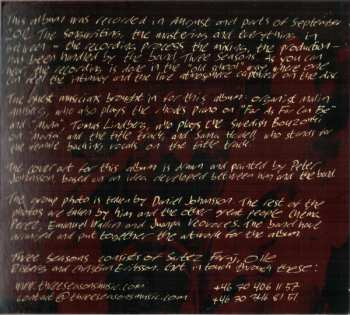 This album was recorded in August and parts of September
The songwriting, the mastering and everything in
between – the recording process, the mixing, the production –
has been handled by the band Three Seasons. As you can
hear the recording is done in the "old school way" where
on the intimacy and the live atmosphere captured on the disc.
The guest musicians brought in for this album: organist Malin
who also plays the piano on "Far As Far Can Be"
and Tomas Lindberg, who plays the Swedish Bouzouki
on and the title track, and Sanna who stands for
the female backing vocals on the title track.
The cover art for this album is drawn and painted by Peter
Johansson based on an idea developed between him and the band.
The group photo is taken by Daniel Johansson. The rest of the
photos are taken by him and the other great people
Perez, Emanuel and The band have
arranged and put together the artwork for the album.
Three Seasons consists of Sartez Faraj, Olle
Risberg and Christian Eriksson. Get in touch through these:
www.threeseasonsmusic.com
contact@threeseasonsmusic.com